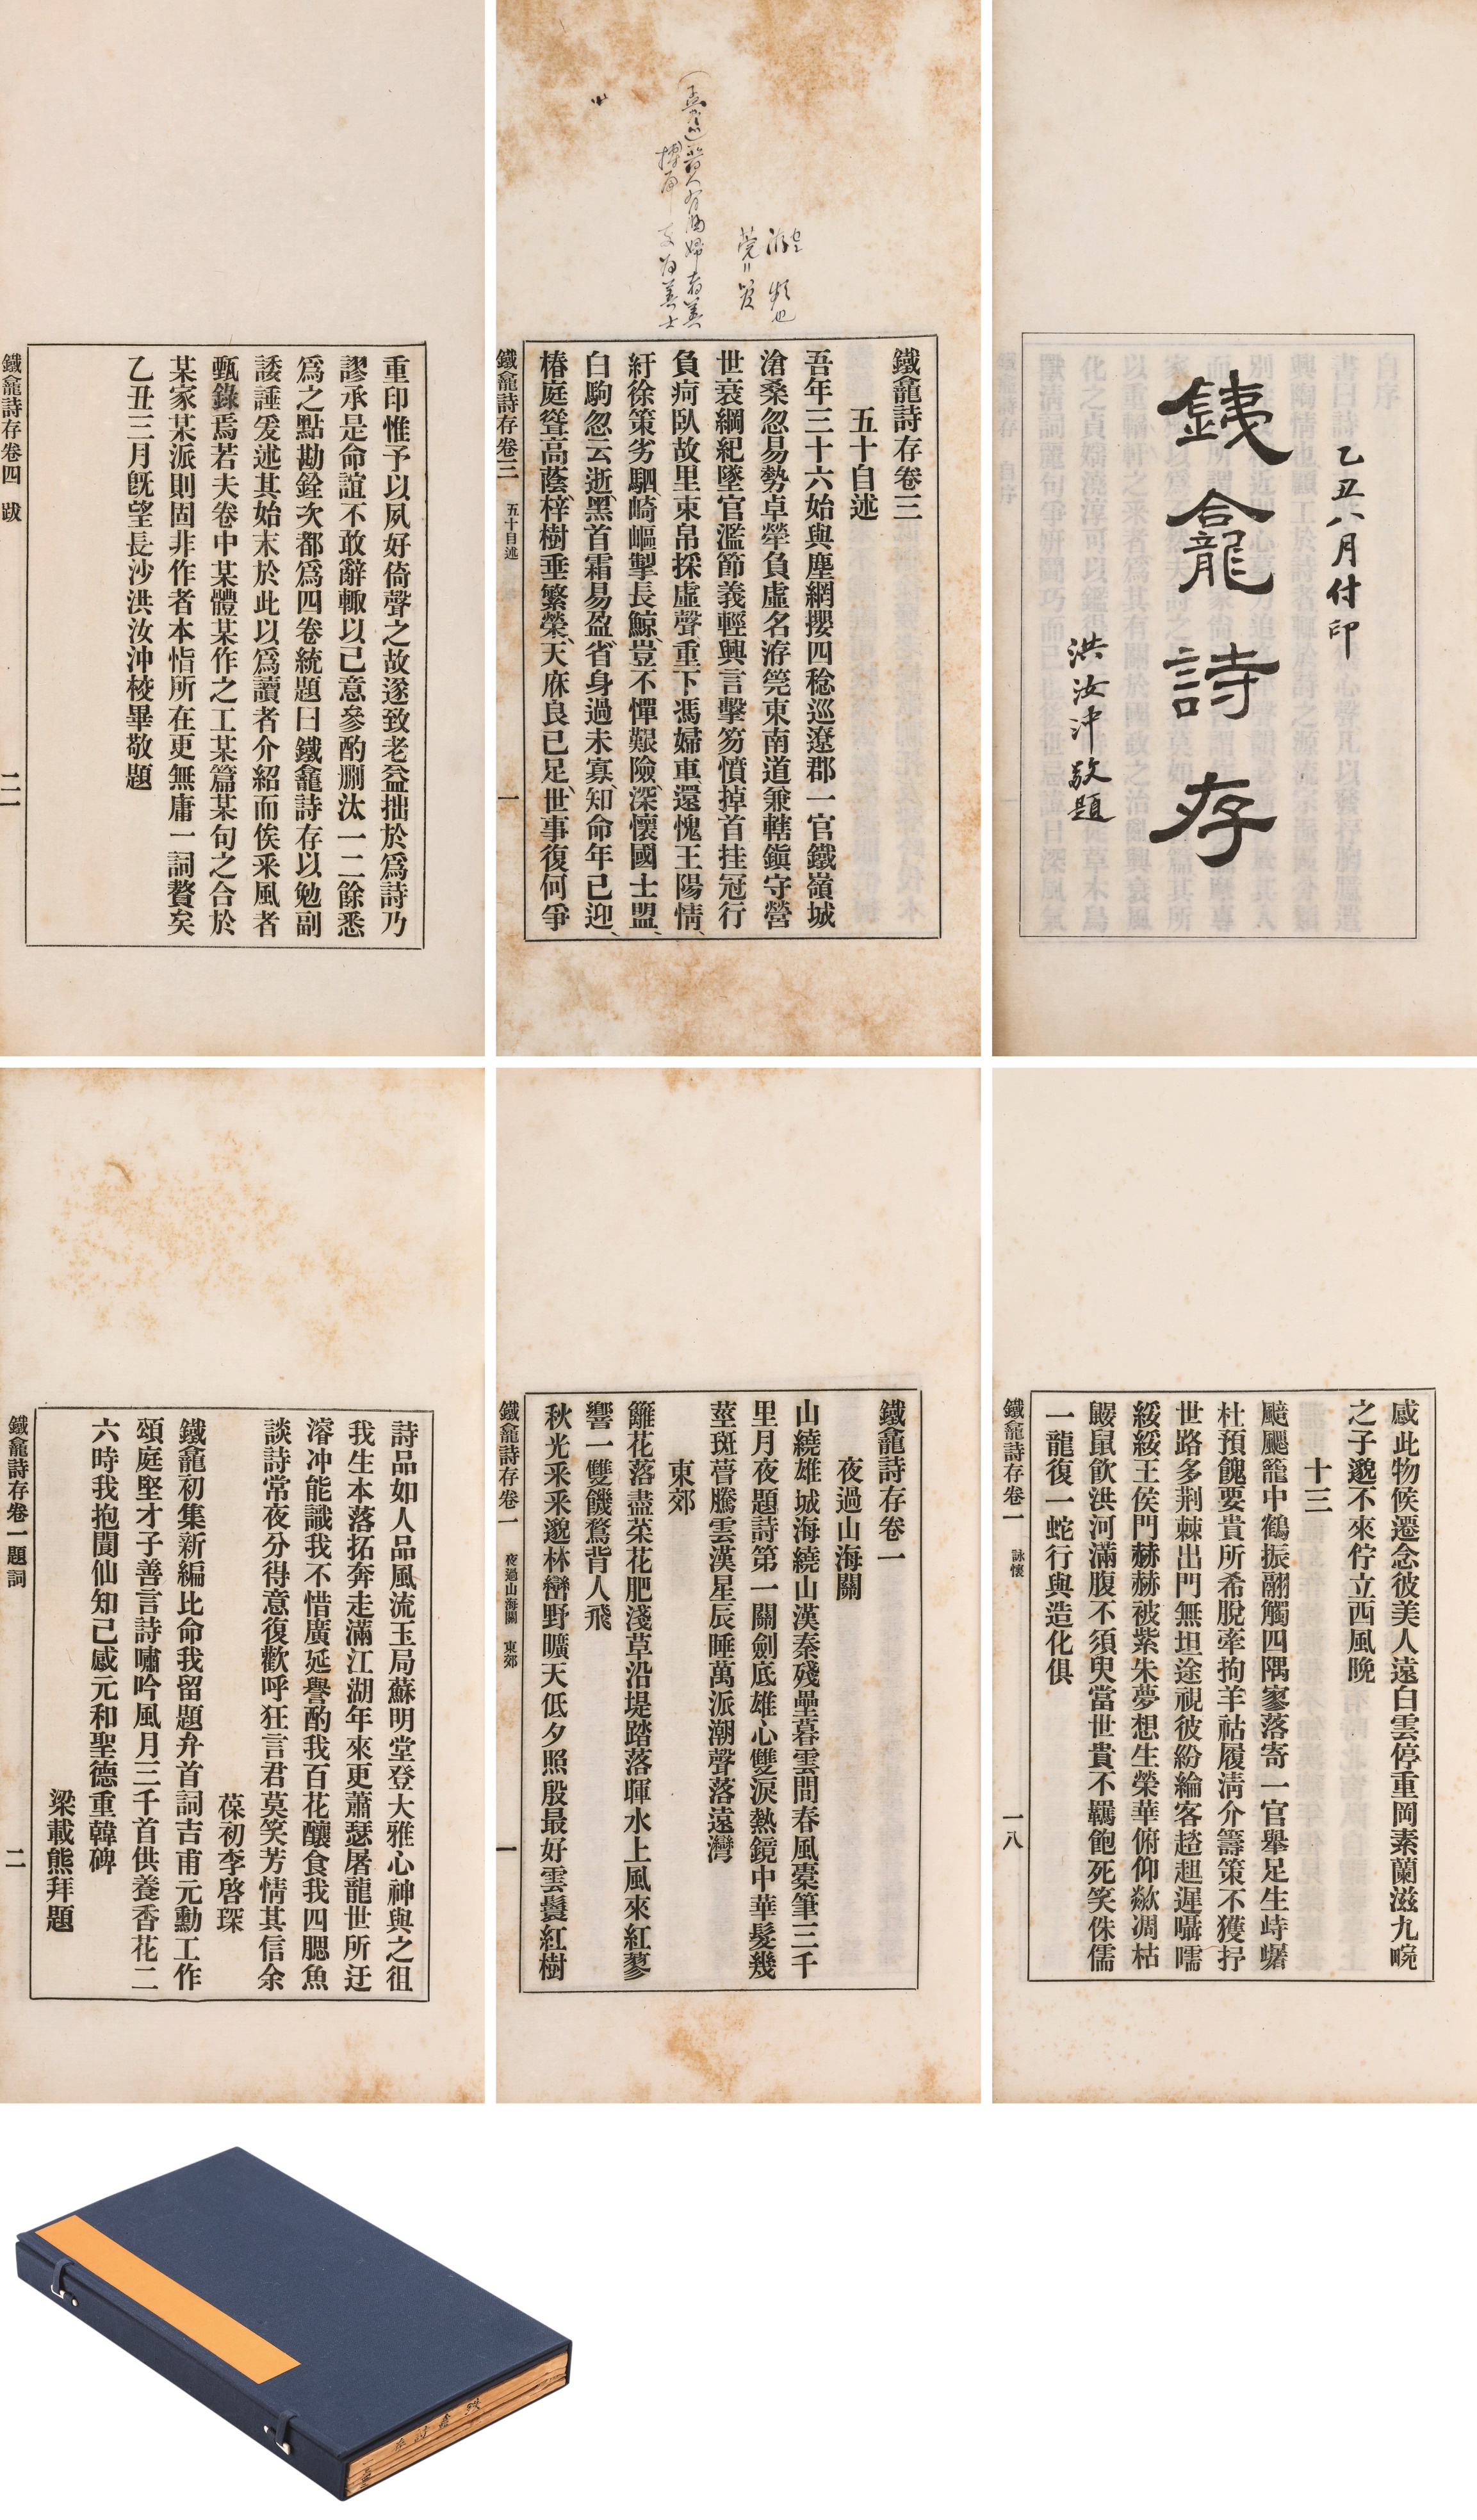 乙丑八月付印
銕龕詩存
洪汝沖敬題
鐵龕詩存卷三
五十自述
吾年三十六始與塵網攖四稔巡遼郡一官鐵嶺城
滄桑忽易勢卓犖負虛名洊筦東南道兼轄鎭守營
世衰綱紀墜官濫節義輕興言擊笏憤掉首挂冠行
負疴臥故里束帛採虛聲重下馮婦車還愧王陽情
紆徐策劣駟崎嶇掣長鯨豈不憚艱險深懷國士盟
白駒忽云逝黑首霜易盈省身過未寡知命年已迎
椿庭聳高蔭梓樹垂繁榮天庥良已足世事復何爭
鐵龕詩存卷三 五十自述 一
重印惟予以夙好倚聲之故遂致老益拙於爲詩乃
謬承是命誼不敢辭輙以己意參酌删汰一二餘悉
爲之點勘銓次都爲四卷統題曰鐵龕詩存以勉副
諉諈爰述其始末於此以爲讀者介紹而俟采風者
甄錄焉若夫卷中某體某作之工某篇某句之合於
某家某派則固非作者本恉所在更無庸一詞贅矣
乙丑三月旣望長沙洪汝沖校畢敬題
鐵龕詩存卷四 跋 二一
感此物候遷念彼美人遠白雲停重岡素蘭滋九畹
之子邈不來佇立西風晚
十三
飀籠中鶴振翮觸四隅寥落寄一官舉足生峙𡾊
杜預餽要貴所希脫牽拘羊祜履淸介籌策不獲抒
世路多荆棘出門無坦途視彼紛綸客趑趄遲囁嚅
綏綏王侯門赫赫被紫朱夢想生榮華俯仰歘凋枯
鼹鼠飮洪河滿腹不須臾當世貴不羈飽死笑侏儒
一龍復一蛇行與造化俱
鐵龕詩存卷一 詠懷 一八
鐵龕詩存卷一
夜過山海關
山繞雄城海繞山漢秦殘壘暮雲間春風櫜筆三千
里月夜題詩第一關劍底雄心雙淚熱鏡中華髮幾
莖斑瞢騰雲漢星辰睡萬派潮聲落遠灣
東郊
籬花落盡菜花肥淺草沿堤踏落暉水上風來紅蓼
響一雙饑鶩背人飛
秋光釆釆邈林巒野曠天低夕照殷最好雲鬟紅樹
鐵龕詩存卷一 夜過山海關 東郊 一
詩品如人品風流玉局蘇明堂登大雅心神與之徂
我生本落拓奔走滿江湖年來更蕭瑟屠龍世所迂
濬沖能識我不惜廣延譽酌我百花釀食我四腮魚
談詩常夜分得意復歡呼狂言君莫笑芳情其信余
葆初李啓琛
鐵龕初集新編比命我留題弁首詞吉甫元勳工作
頌庭堅才子善言詩嘯吟風月三千首供養香花二
六時我抱閬仙知己感元和聖德重韓碑
梁載熊拜題
鐵龕詩存卷一題詞 二